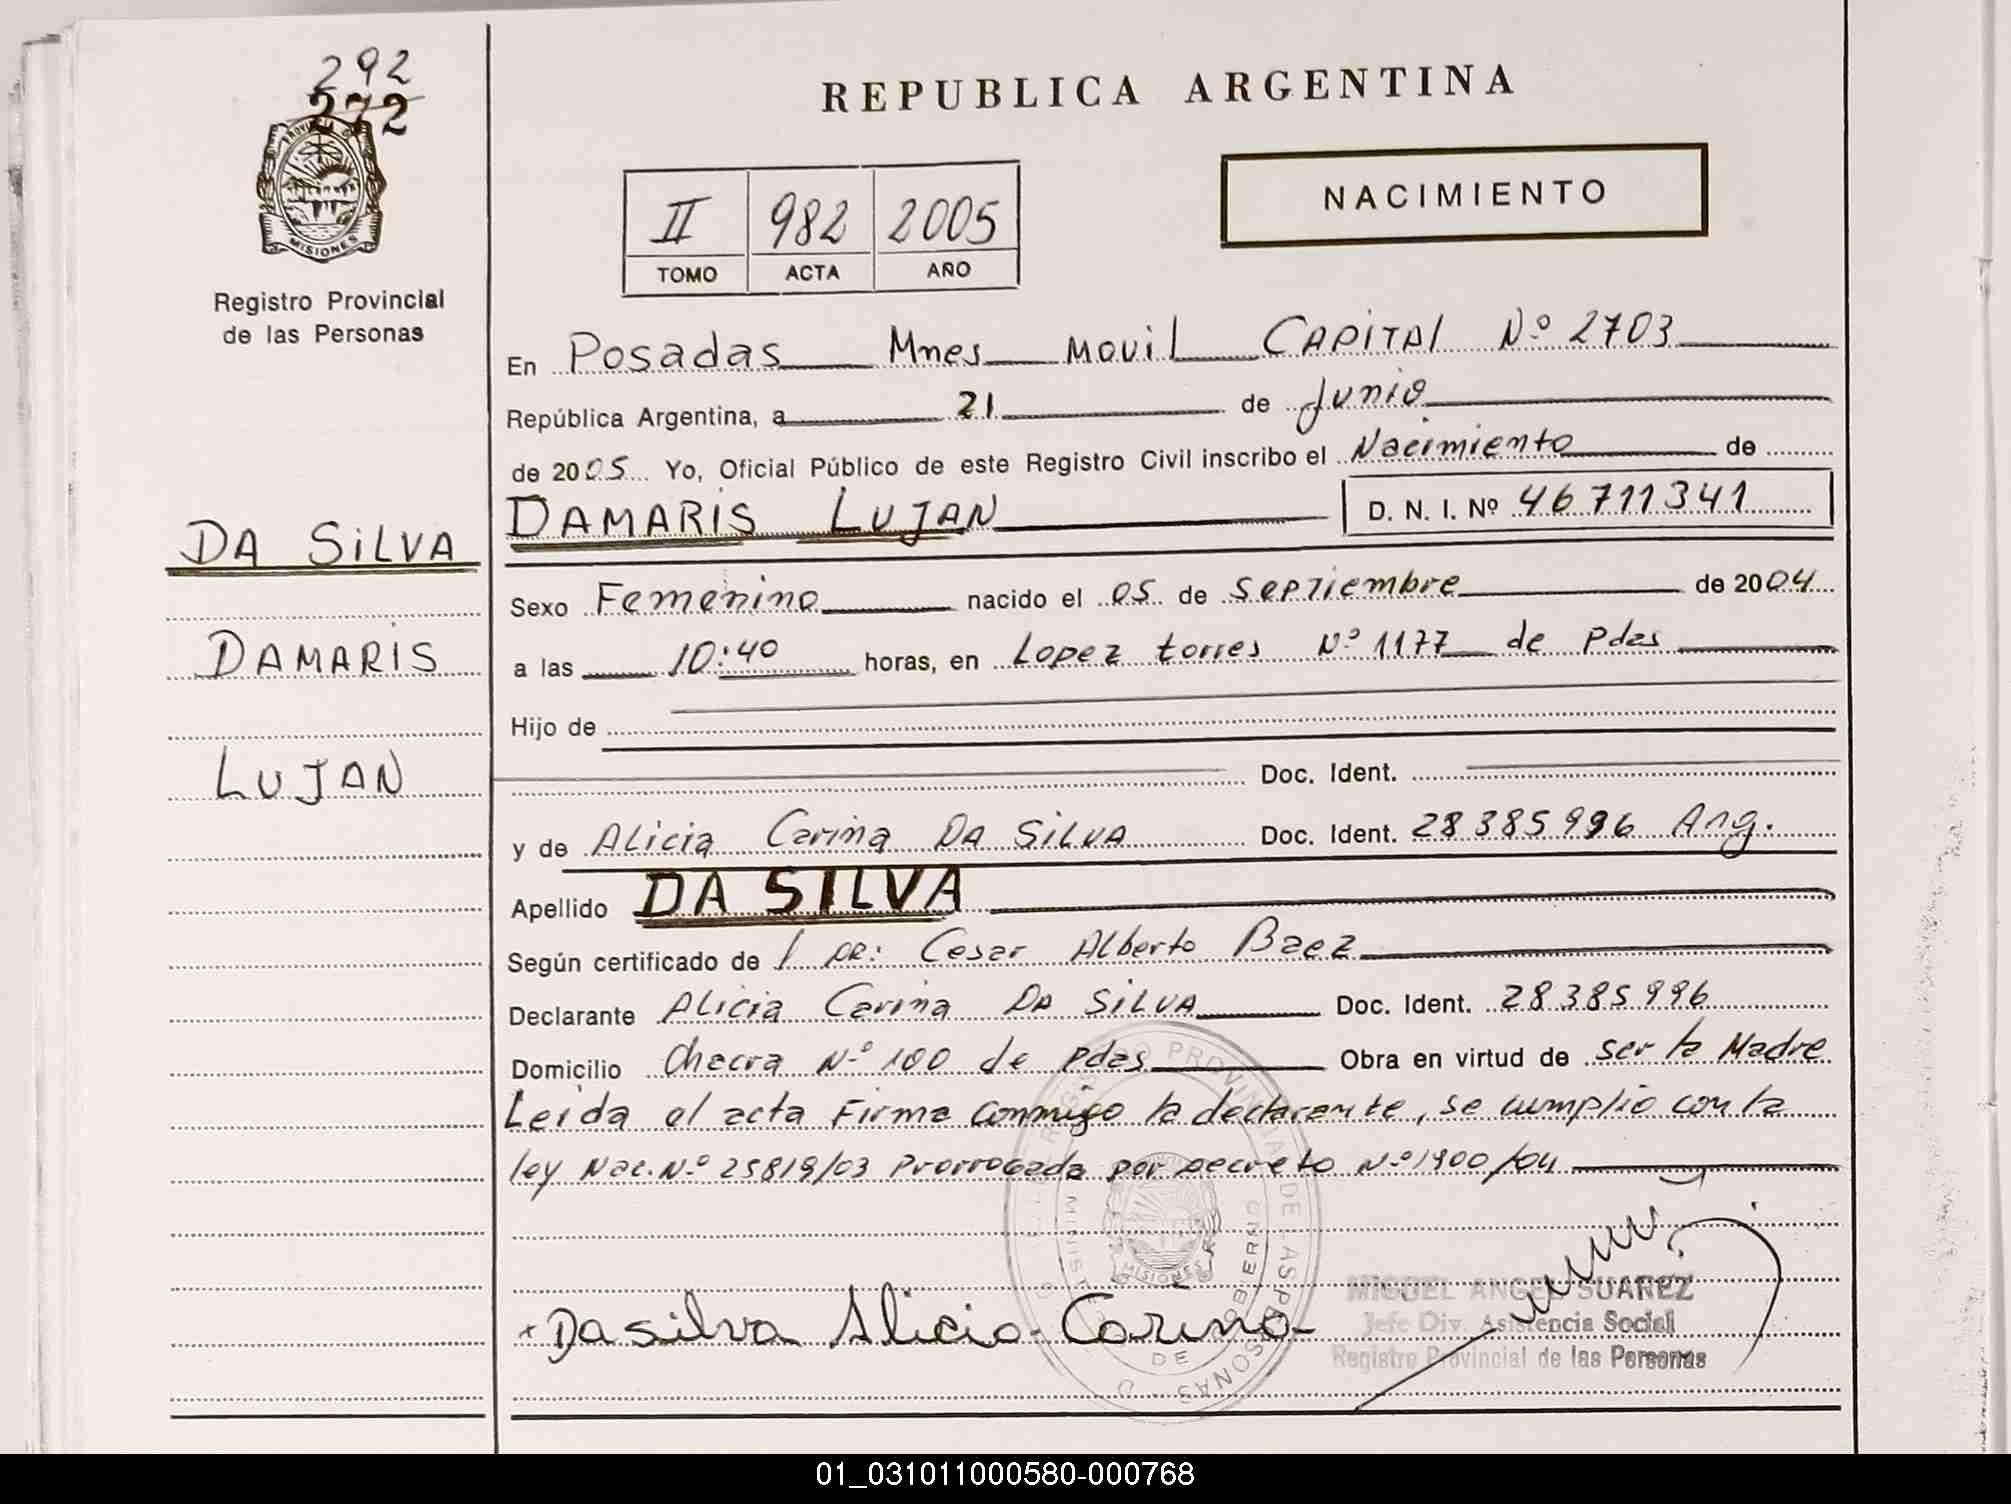 292
272
PROVINCIA DE
MISIONES
Registro Provincial
de las Personas
DA SILVA
DAMARIS
LUJAN
REPUBLICA ARGENTINA
II 982 2005
TOMO ACTA AÑO
NACIMIENTO
En Posadas Mnes Movil CAPITAL Nº 2703
República Argentina, a 21 de Junio
de 2005 Yo, Oficial Público de este Registro Civil inscribo el Nacimiento de
DAMARIS LUJAN D. N. I. Nº 46711341
Sexo Femenino nacido el 05 de Septiembre de 2004
a las 10:40 horas, en Lopez torres Nº 1177 de Pdas
Hijo de
Doc. Ident.
y de Alicia Carina DA SILVA Doc. Ident. 28385996 Arg.
Apellido DA SILVA
Según certificado de 1 DR: Cesar Alberto Baez
Declarante Alicia Carina DA SILVA Doc. Ident. 28385996
Domicilio Chacra Nº 100 de Pdas Obra en virtud de ser la Madre
Leida el acta Firma conmigo la declarante, se cumplio con la
ley Nac. Nº 25819/03 Prorrogada por Decreto Nº 1900/04
Da silva Alicia Carina
MIGUEL ANGEL SUAREZ
Jefe Div. Asistencia Social
Registro Provincial de las Personas
01_031011000580-000768